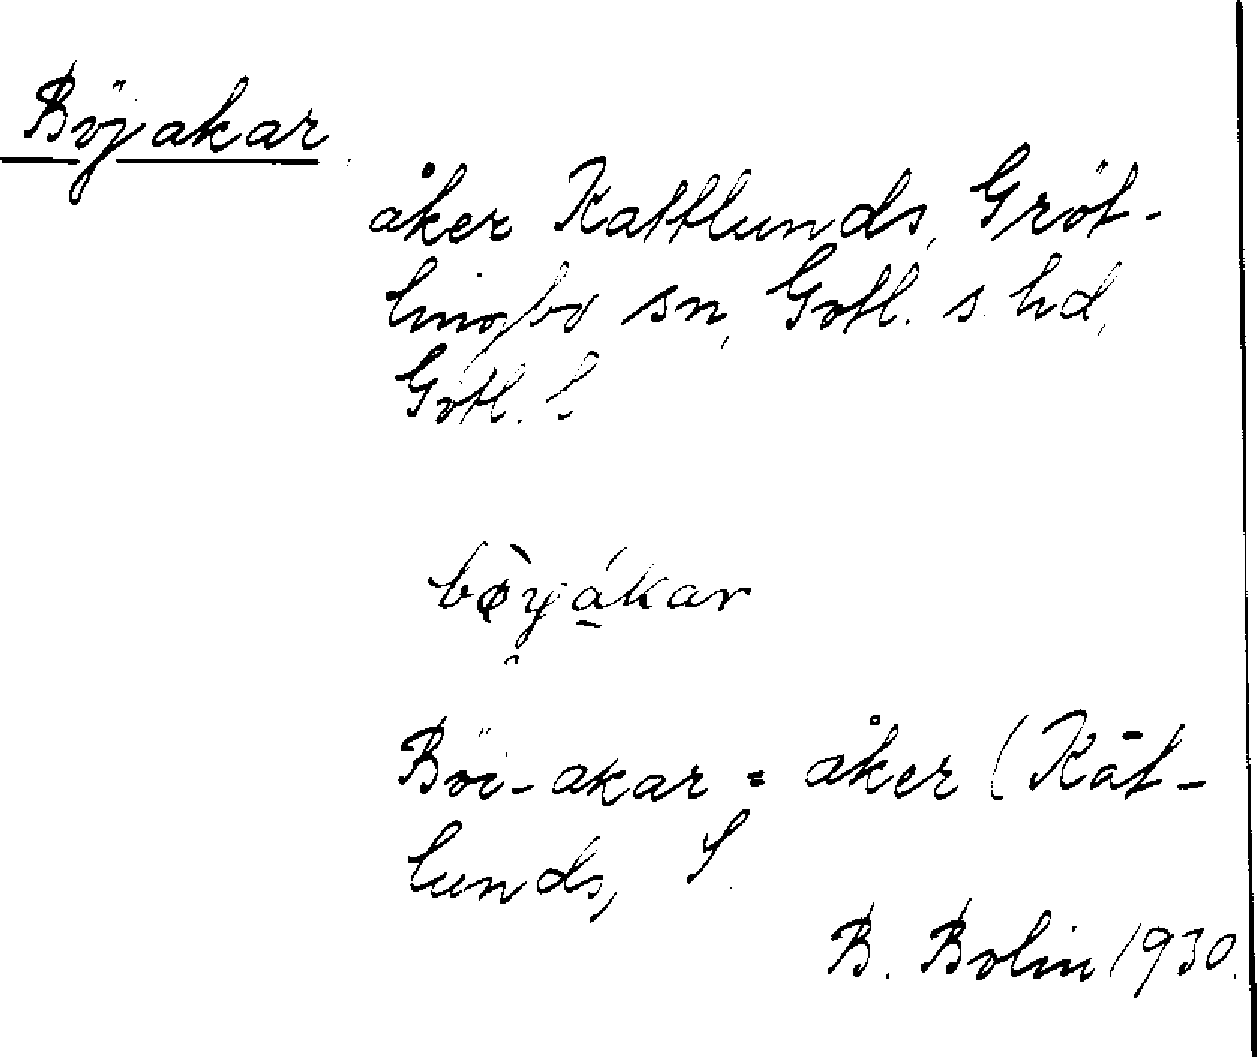 Böjakar
åker Kattlunds, Gröt-
lingbo sn, Gotl. s. hd,
Gotl. l.
bø̀yákar
Böi-akar = åker (Kät-
lunds,
B. Bolin 1930.